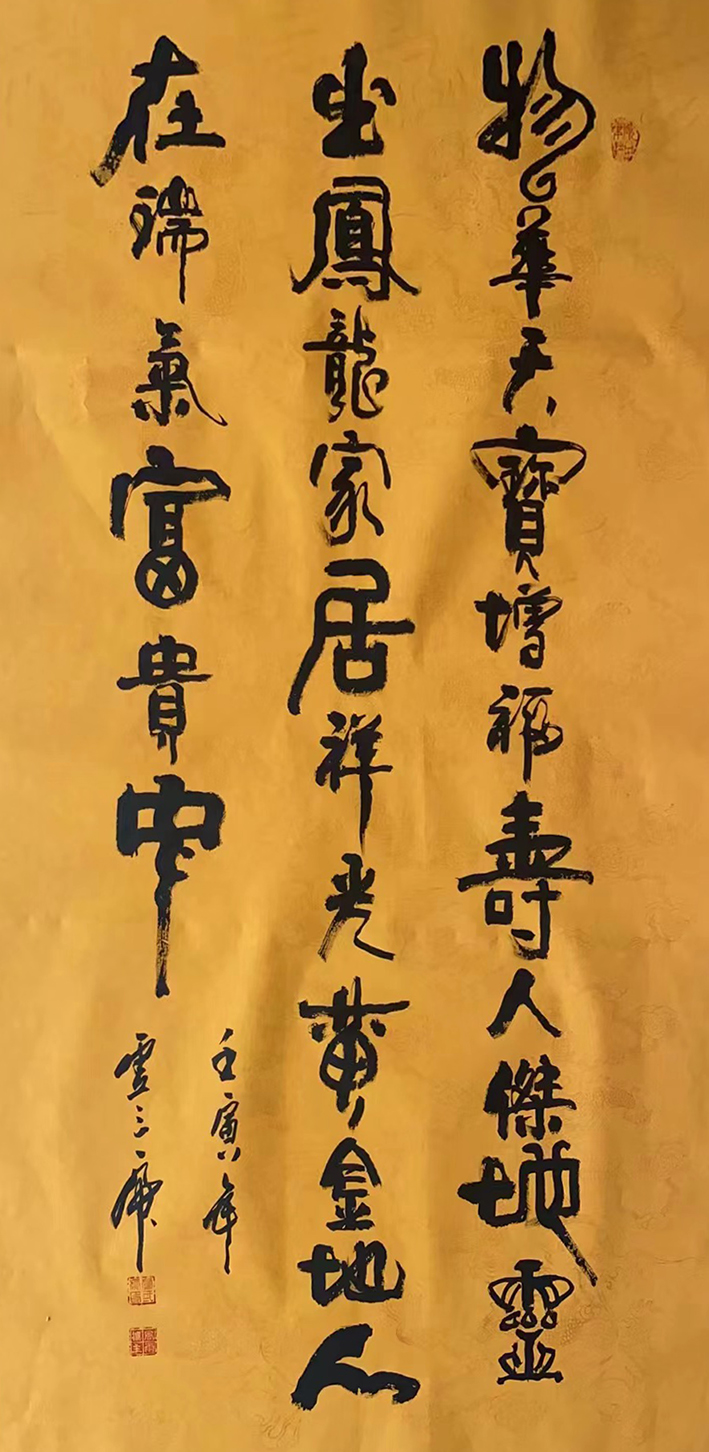 物華天寶增福壽人傑地靈
出鳳龍家居祥光黄金地人
在瑞氣富貴中
壬寅年
雲三